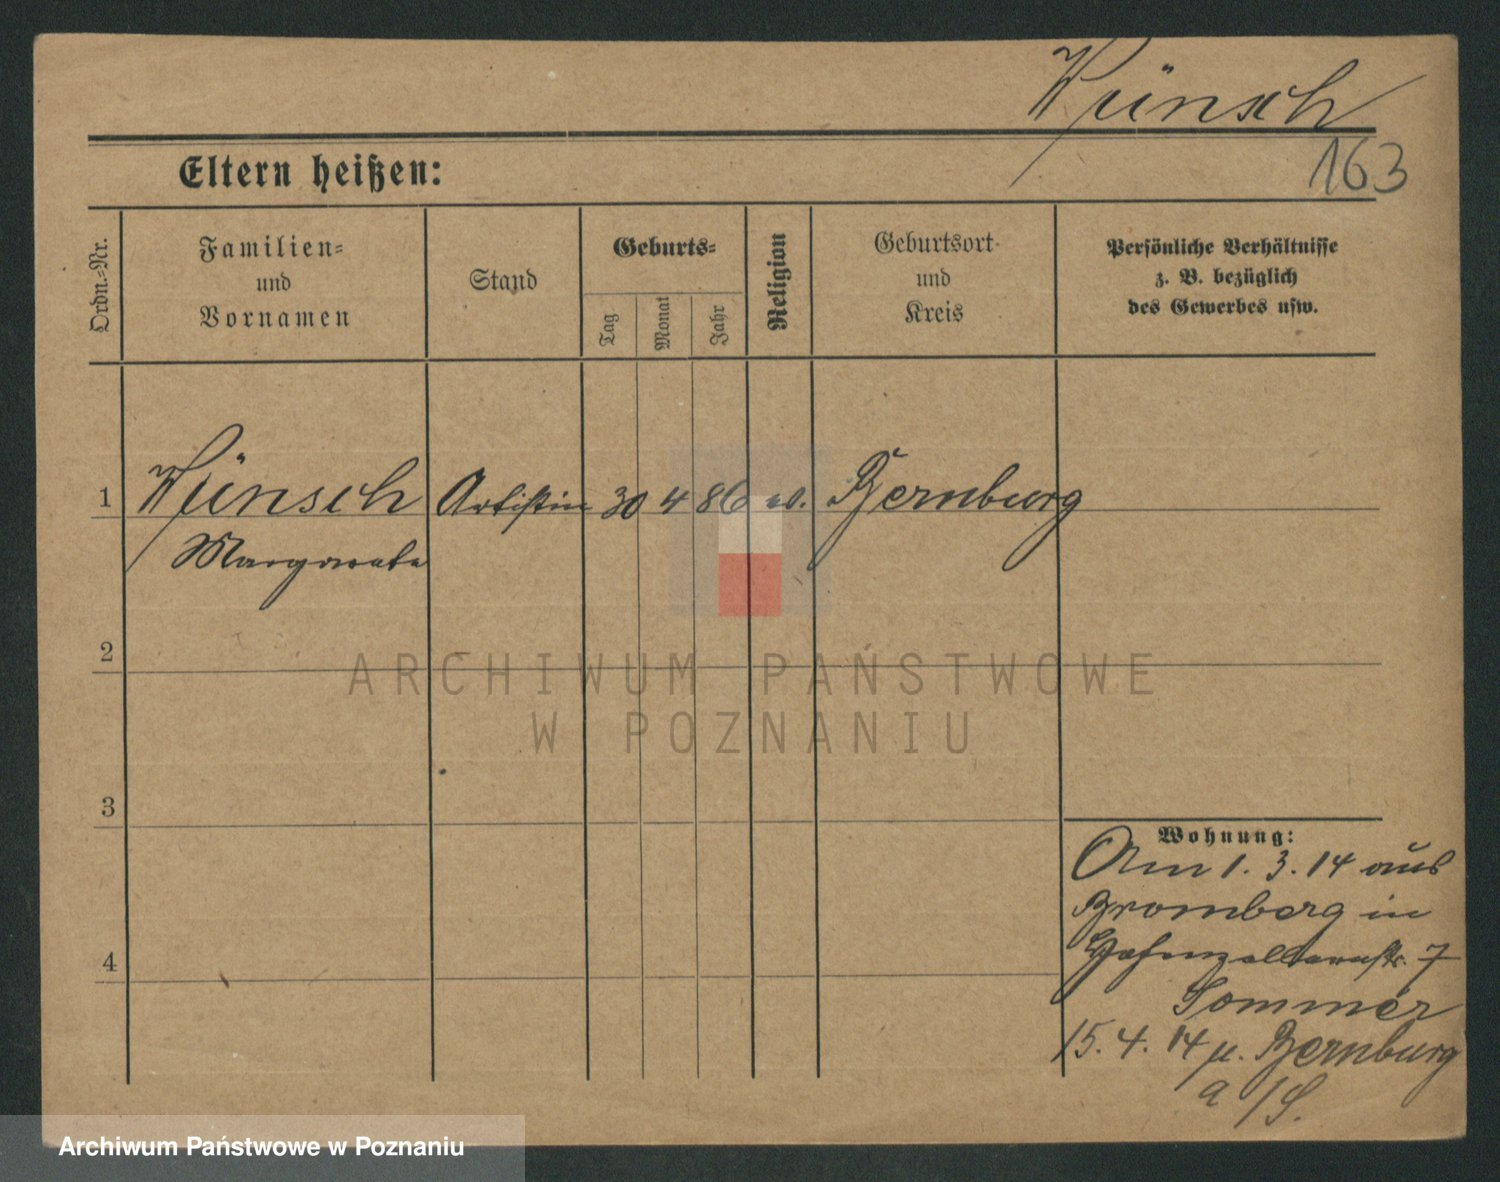 Wünsch
163
Eltern heißen:
Ordn.-Nr.
Familien-
und
Vornamen
Stand
Geburts-
Tag
Monat
Jahr
Religion
Geburtsort
und
Kreis
Persönliche Verhältnisse
z. B. bezüglich
des Gewerbes usw.
1 Wünsch Artistin 30 4 86 ev. Bernburg
Margareta
2
ARCHIWUM PAŃSTWOWE
W POZNANIU
3
Wohnung:
Am 1. 3. 14 aus
Bromberg in
4
Hohenzollernstr. 7
Sommer
15. 4. 14 n. Bernburg
a/S.
Archiwum Państwowe w Poznaniu